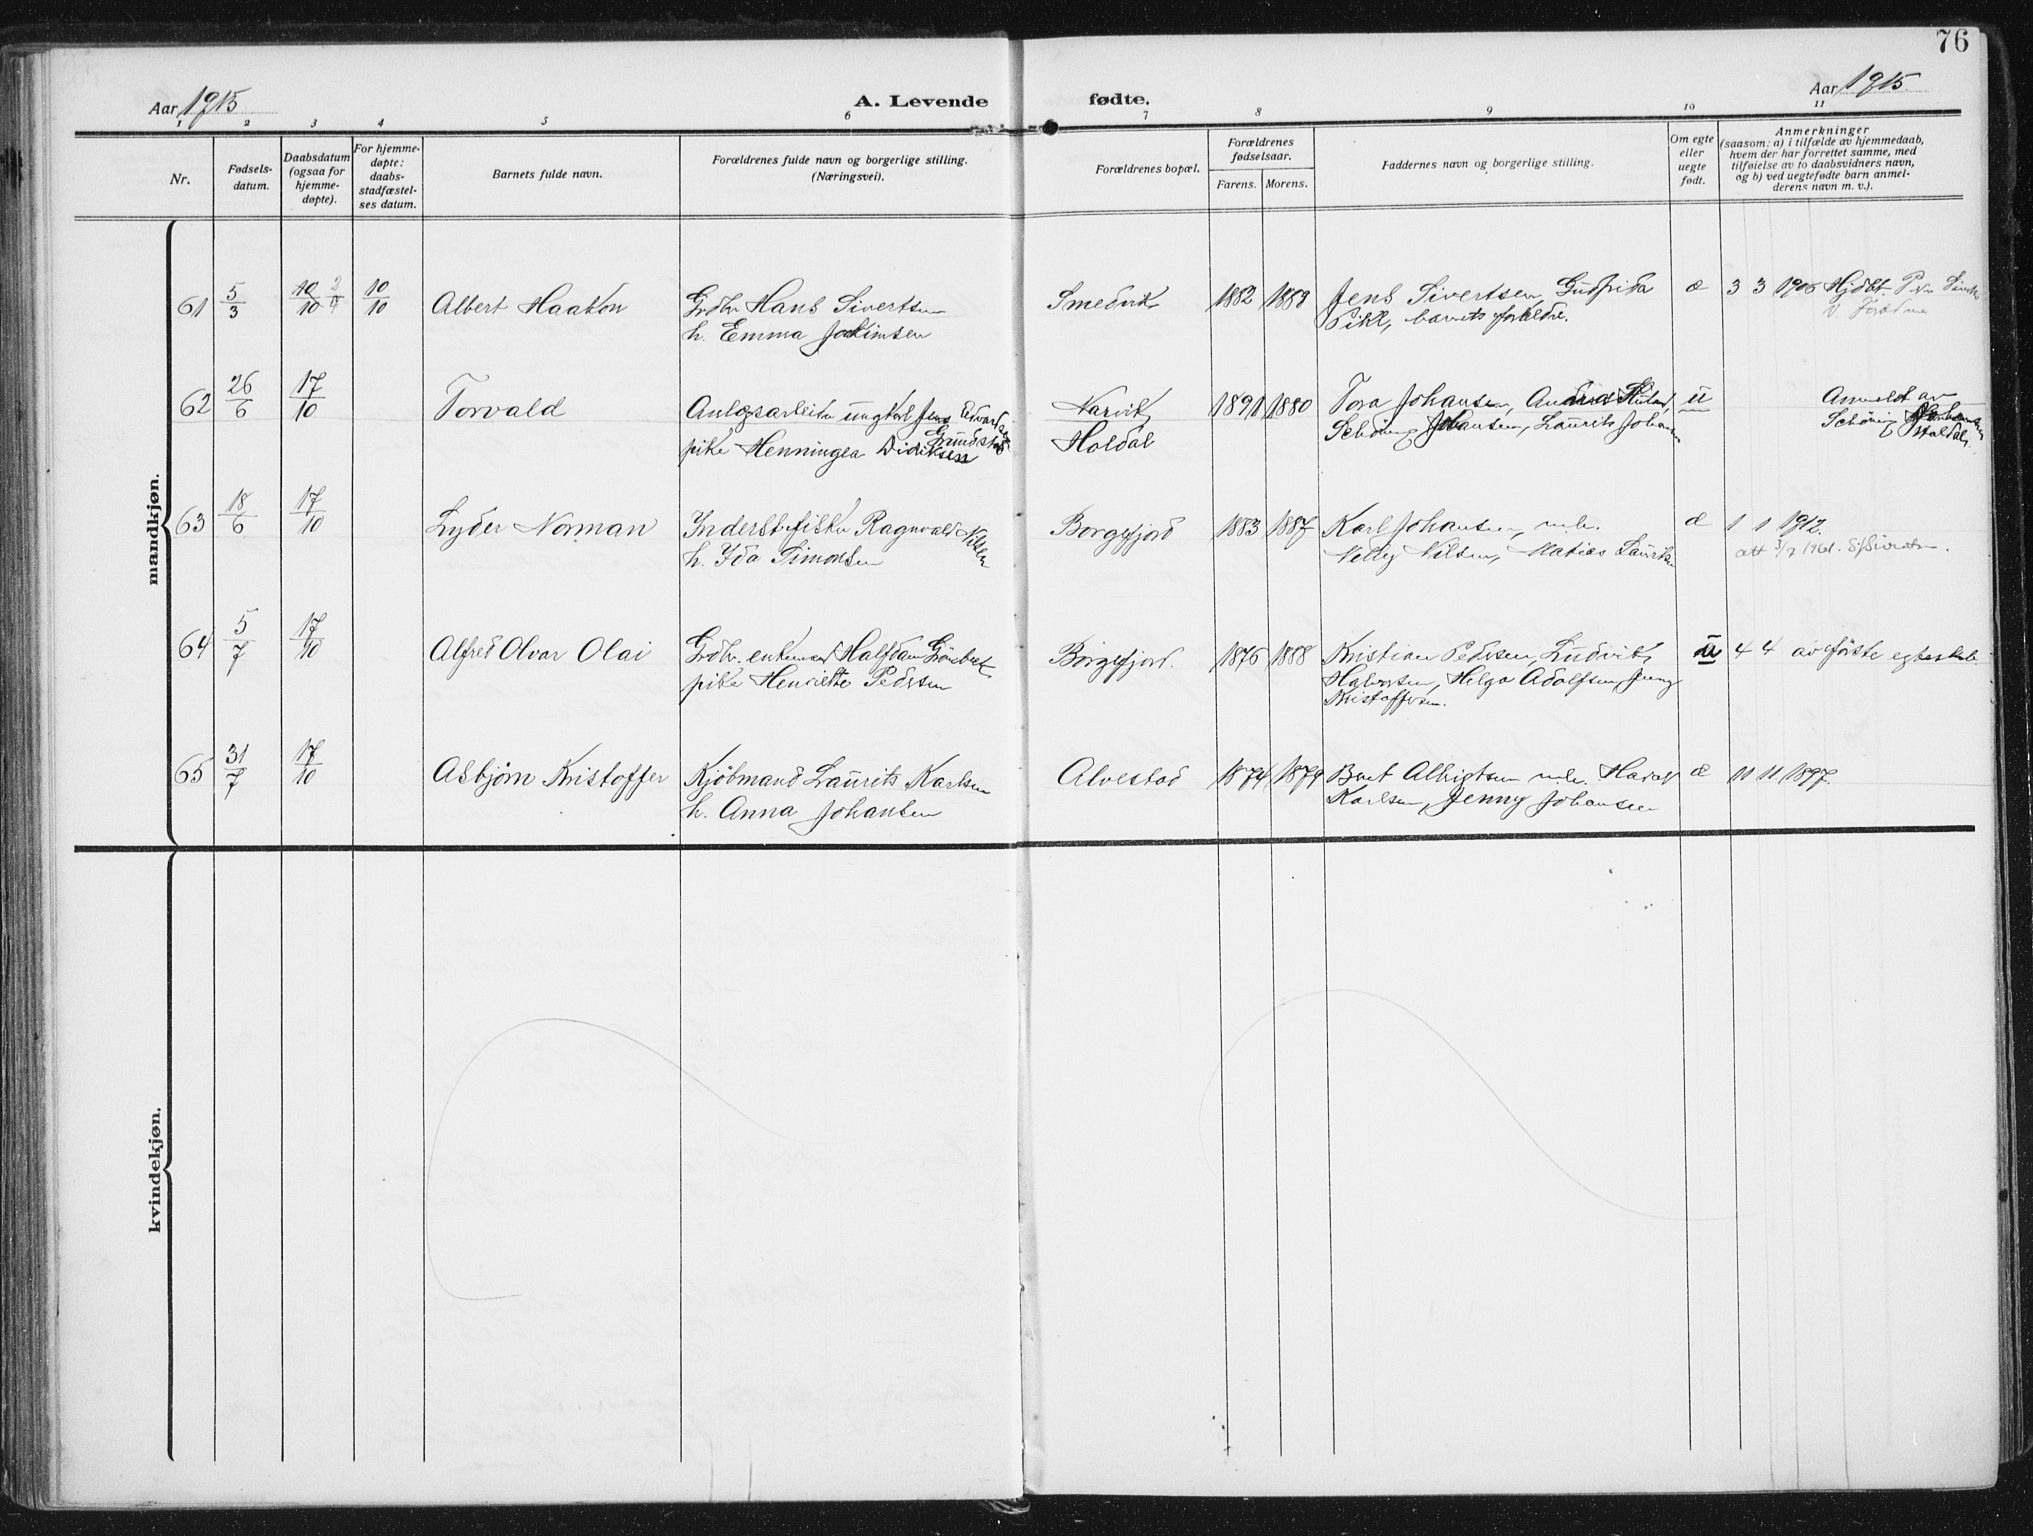 76
Aar 1915
A. Levende fødte.
Aar 1915
1 2 3 4 5 6 7 8 9 10 11
Nr.
Fødsels-
datum.
Daabsdatum
(ogsaa for
hjemme-
døpte).
For hjemme-
døpte:
daabs-
stadfæstel-
ses datum.
Barnets fulde navn.
Forældrenes fulde navn og borgerlige stilling.
(Næringsvei).
Forældrenes bopæl.
Forældrenes
fødselsaar.
Farens. Morens.
Faddernes navn og borgerlige stilling.
Om egte
eller
uegte
født.
Anmerkninger
(saasom: a) i tilfælde av hjemmedaab,
hvem der har forrettet samme, med
tilføielse av to daabsvidners navn,
og b) ved uegtefødte barn anmel-
derens navn m. v.).
mandkjøn.
61 5/3 10/10 10/10 Albert Haakon Grdbr Hans Sivertsen Smedvik 1882 1889 Jens Sivertsen, Gudfrida æ 3 3 1906 Hjdbt
h. Emma Jokimsen
Pikl, barnets forældre.
62 26/6 17/10 Torvald Anlægsarbeider ungkarl Jens Edvardsen Narvik 1891 1880 Tora Johansen, u Anmeldt av
Grundstad
pike Henningea Didriksen Holdal Schöning Johansen, Laurits Johansen Schöning Johansen
Holdal.
63 18/6 17/10 Lyder Norman Inderst fisker Ragnvald Nilsen Borgefjord 1883 1887 Karl Johansen, m.h. æ 1 1 1912.
h. Ida Simonsen Nelly Nilsen, Matias Lauritsen att 3/7 1961.
64 5/7 17/10 Alfred Olvar Olai Grdbr. enkemand Halfdan Grönbeck Borgefjord. 1876 1888 Kristian Pedersen, Ludvik u 4 4 av förste egteskab.
pike Henriette Pedersen Halvorsen, Helga Adolfsen, Jenny
Kristoffersen.
65 31/7 17/10 Asbjørn Kristoffer Kjöbmand Laurits Karlsen Alvestad 1874 1879 Bent Albrigtsen m.h. Harald æ 11 11 1897.
h. Anna Johansen Karlsen, Jenny Johansen
kvindekjøn.